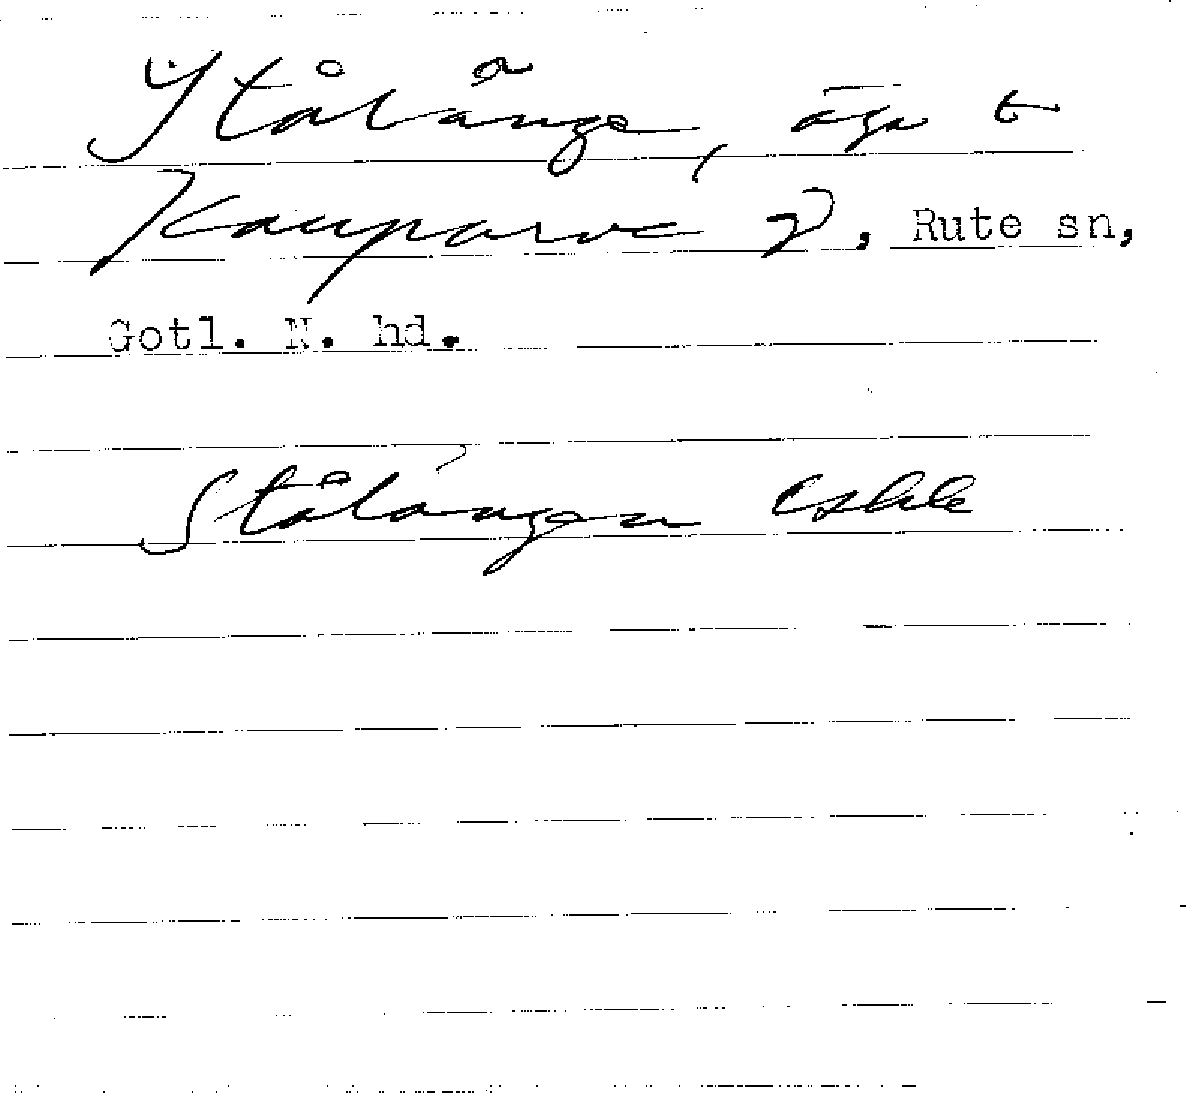 Stålänge, äga t
Kauparve 2, Rute sn,
Gotl. N. hd.
Stålängen